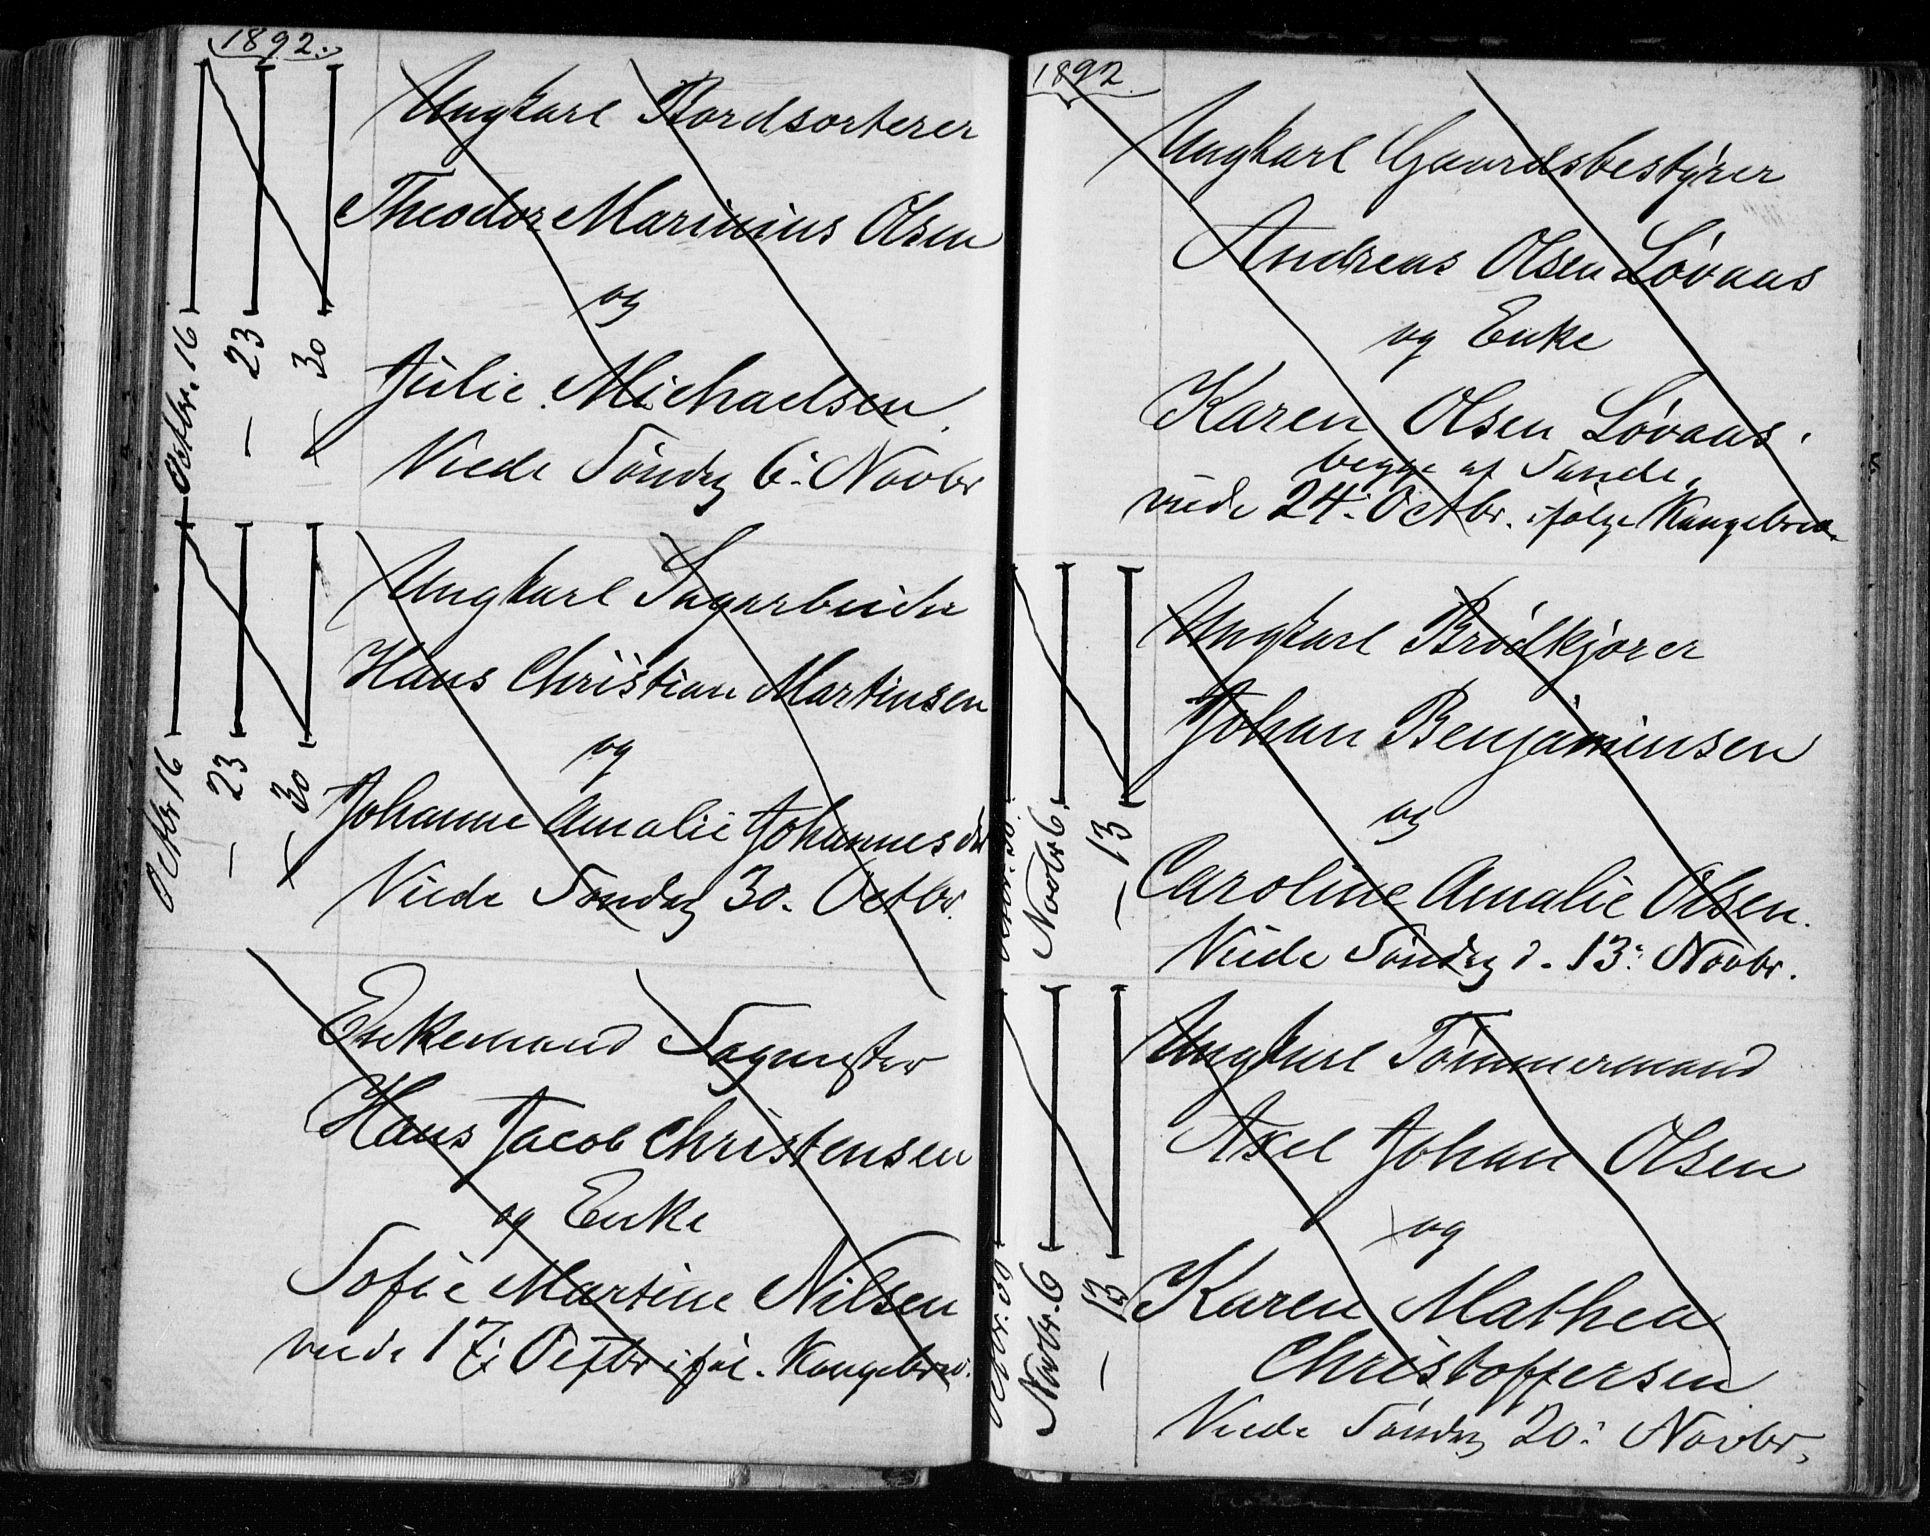 1892.
Octbr. 16
— 23
— 30
Ungkarl Bordsorterer
Theodor Marinius Olsen
og
Julie Michaelsen.
Viede Søndag 6: Novbr
Octbr 16
— 23
— 30
Ungkarl Sagarbeider
Hans Christian Martinsen
og
Johanne Amalie Johannesdtr
Viede Søndag 30. Octbr.
Enkemand Sagmester
Hans Jacob Christensen
og Enke
Sofie Martine Nilsen
viede 17: Octbr iføl. Kongebrev.
1892.
Ungkarl Gaardsbestyrer
Andreas Olsen Løvaas
og Enke
Karen Olsen Løvaas.
begge af Sande.
viede 24. Octbr. ifølge Kongebrev.
Octbr. 30
Novbr 6
— 13
Ungkarl Brødkjører
Johan Benjaminsen
og
Caroline Amalie Olsen.
Viede Søndag d. 13: Novbr.
Octbr. 30
Novbr. 6
— 13
Ungkarl Tømmermand
Axel Johan Olsen
og
Karen Mathea
Christoffersen
Viede Søndag 20: Novbr.